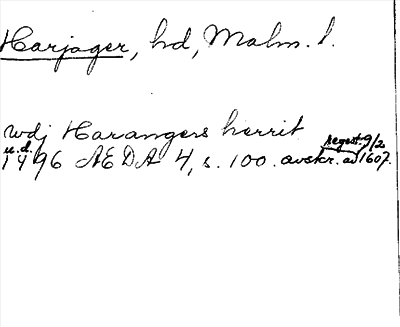 Harjager, hd, Malm. l.
wdj Harangers herrit
u.d. regest. 9/2
1496 AEDA 4, s. 100. avskr. av 1607.